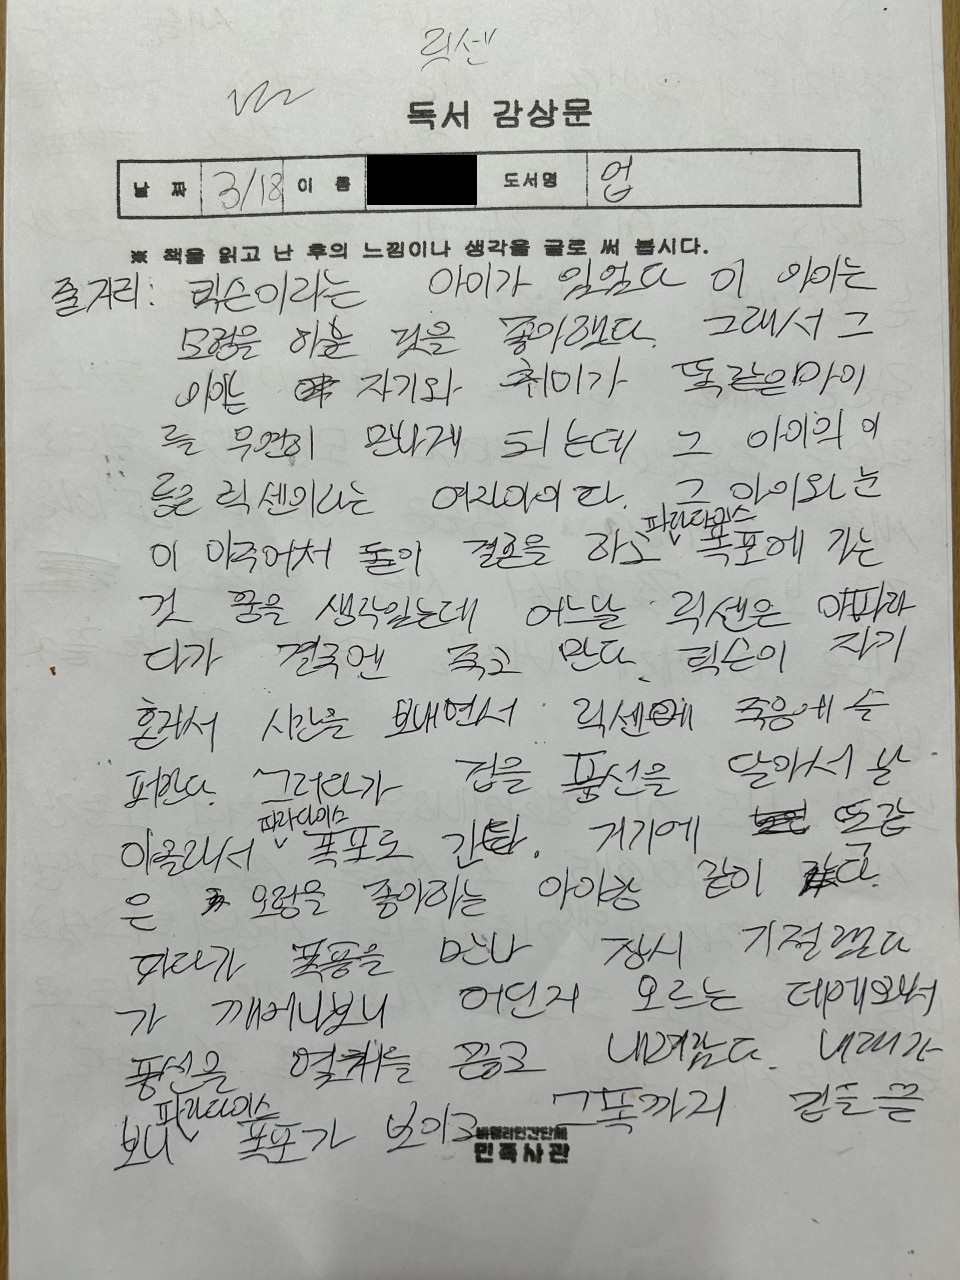 릭센
독서 감상문
날 짜 3/18 이 름 도서명 업
※ 책을 읽고 난 후의 느낌이나 생각을 글로 써 봅시다.
줄거리: 릭슨이라는 아이가 있었다 이 아이는
모험을 하는 것을 좋아했다. 그래서 그
아이는 자기와 취미가 똑같은 아이
를 우연히 만나게 되는데 그 아이의 이
름은 릭센이라는 여자아이다. 그 아이와 눈
이 마주쳐 둘이 결혼을 하고 파라다이스 폭포에 가는
것 꿈을 생각있는데 어느날 릭센은 아파라
다가 결국엔 죽고 만다. 릭슨이 자기
혼자서 시간을 보내면서 릭센에 죽음에 슬
퍼한다. 그러다가 집을 풍선을 달아서 날
아올라서 파라다이스 폭포로 간다. 거기에 똑같
은 모험을 좋아하는 아이랑 같이
가다가 폭풍을 만나 잠시 기절했다
가 깨어나보니 어딘지 모르는 데에 와서
풍선을 열개를 끊고 내려갔다. 내려가
보니 파라다이스 폭포가 보이고 그쪽까지 집을 끌
바펠러인간단체
민족사관